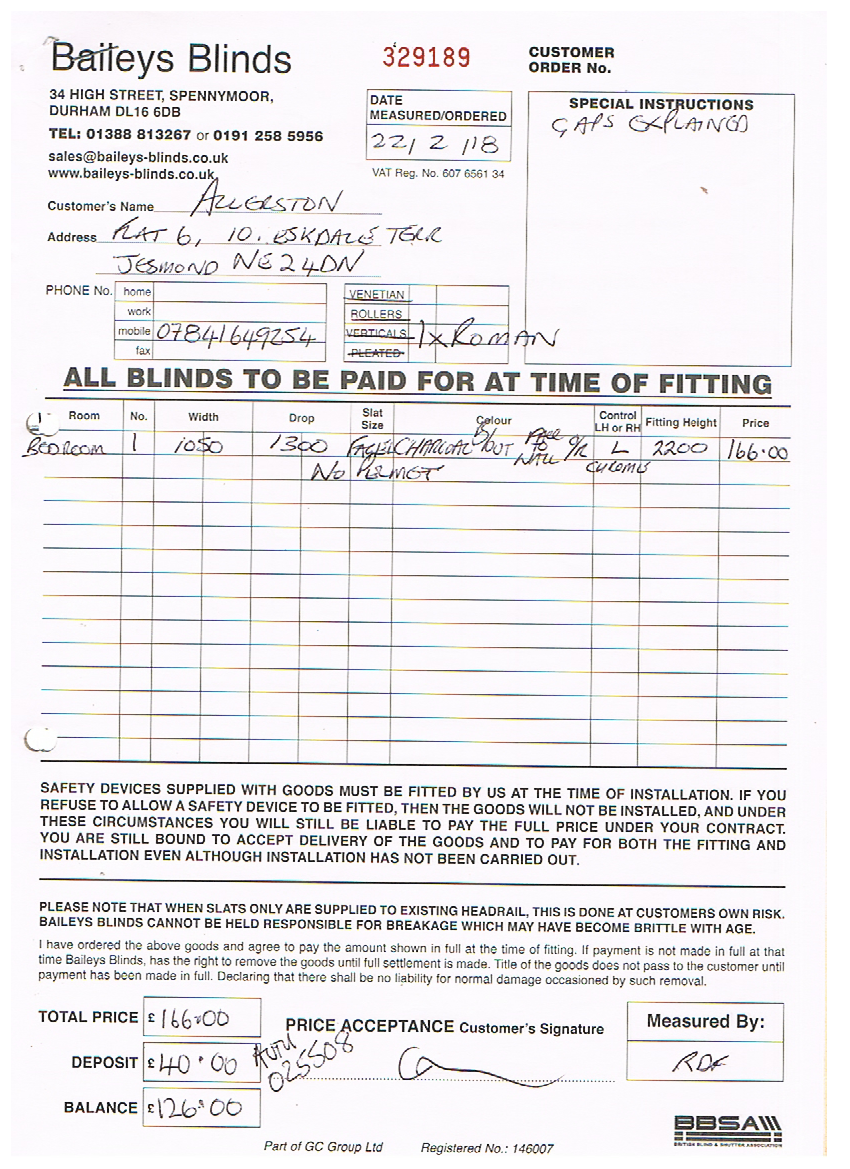 Baileys Blinds
329189
CUSTOMER
ORDER No.
34 HIGH STREET, SPENNYMOOR,
DURHAM DL16 6DB
TEL: 01388 813267 or 0191 258 5956
sales@baileys-blinds.co.uk
www.baileys-blinds.co.uk
DATE
MEASURED/ORDERED
22/2/18
VAT Reg. No. 607 6561 34
SPECIAL INSTRUCTIONS
GAPS EXPLAINED
Customer's Name ALLERSTON
Address FLAT 6, 10. ESKDALE TERR
JESMOND NE2 4DN
PHONE No. home
work
mobile 07841649254
fax
VENETIAN
ROLLERS
VERTICALS 1 x ROMAN
PLEATED
ALL BLINDS TO BE PAID FOR AT TIME OF FITTING
Room No. Width Drop Slat Size Colour Control LH or RH Fitting Height Price
BEDROOM 1 1050 1300 CHARCOAL B/OUT TO WALL O/R L 2200 166.00
NO PELMET CHROME
SAFETY DEVICES SUPPLIED WITH GOODS MUST BE FITTED BY US AT THE TIME OF INSTALLATION. IF YOU
REFUSE TO ALLOW A SAFETY DEVICE TO BE FITTED, THEN THE GOODS WILL NOT BE INSTALLED, AND UNDER
THESE CIRCUMSTANCES YOU WILL STILL BE LIABLE TO PAY THE FULL PRICE UNDER YOUR CONTRACT.
YOU ARE STILL BOUND TO ACCEPT DELIVERY OF THE GOODS AND TO PAY FOR BOTH THE FITTING AND
INSTALLATION EVEN ALTHOUGH INSTALLATION HAS NOT BEEN CARRIED OUT.
PLEASE NOTE THAT WHEN SLATS ONLY ARE SUPPLIED TO EXISTING HEADRAIL, THIS IS DONE AT CUSTOMERS OWN RISK.
BAILEYS BLINDS CANNOT BE HELD RESPONSIBLE FOR BREAKAGE WHICH MAY HAVE BECOME BRITTLE WITH AGE.
I have ordered the above goods and agree to pay the amount shown in full at the time of fitting. If payment is not made in full at that
time Baileys Blinds, has the right to remove the goods until full settlement is made. Title of the goods does not pass to the customer until
payment has been made in full. Declaring that there shall be no liability for normal damage occasioned by such removal.
TOTAL PRICE £ 166.00
PRICE ACCEPTANCE Customer's Signature
Measured By:
RDF
DEPOSIT £ 40.00
AUTH
025508
BALANCE £ 126.00
BBSA
BRITISH BLIND & SHUTTER ASSOCIATION
Part of GC Group Ltd Registered No.: 146007